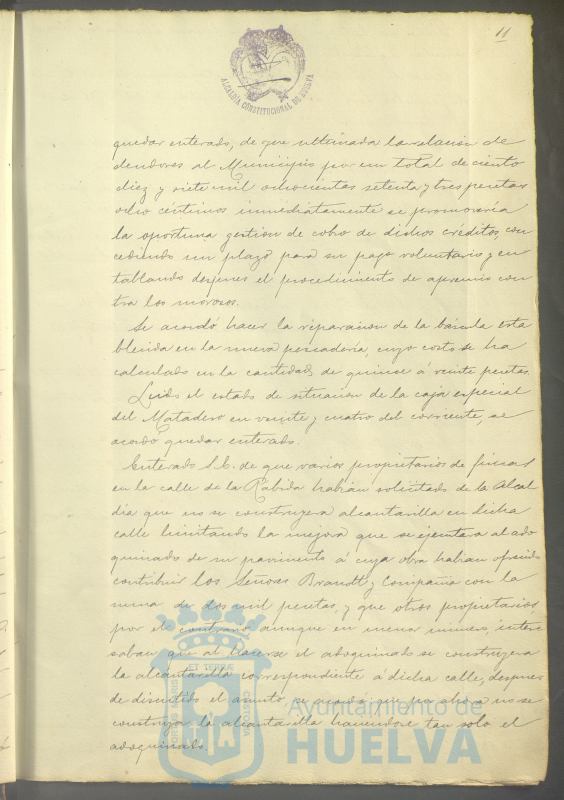 11
ALCALDÍA CONSTITUCIONAL DE HUELVA
quedar enterado, de que ultimada la relación de
deudores al Municipio por un total de ciento
diez y siete mil ochocientas setenta y tres pesetas
ocho céntimos inmediatamente se promovería
la oportuna gestión de cobro de dichos créditos, con
cediendo un plazo para su pago voluntario y en
tablando despues el procedimiento de apremio con
tra los morosos.
Se acordó hacer la reparación de la báscula esta
blecida en la nueva pescadería, cuyo costo se ha
calculado en la cantidad de quince á veinte pesetas.
Leido el estado de situación de la caja especial
del Matadero en veinte y cuatro del corriente, se
acordó quedar enterado.
Enterado S.E. de que varios propietarios de fincas
en la calle de la Rábida habían solicitado de la Alcal
dia que no se construyera alcantarilla en dicha
calle limitando la mejora que se ejecutara al ado
quinado de su pavimento á cuya obra habían ofrecido
contribuir los Señores Brandt y Compañía con la
suma de dos mil pesetas, y que otros propietarios
por el contrario aunque en menor número, intere
saban que al hacerse el adoquinado se construyera
la alcantarilla correspondiente á dicha calle, despues
de discutido el asunto se acordó que por ahora no se
construya la alcantarilla haciendose tan solo el
adoquinado.
PORTUS MARIS ET TERRÆ CUSTODIA
Ayuntamiento de
HUELVA